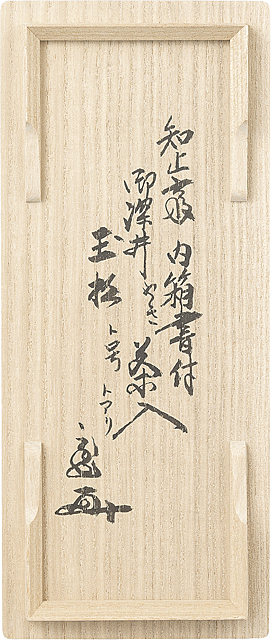 知止斎 内箱書付
御深井やき 茶入
玉柏
ト号 トアリ